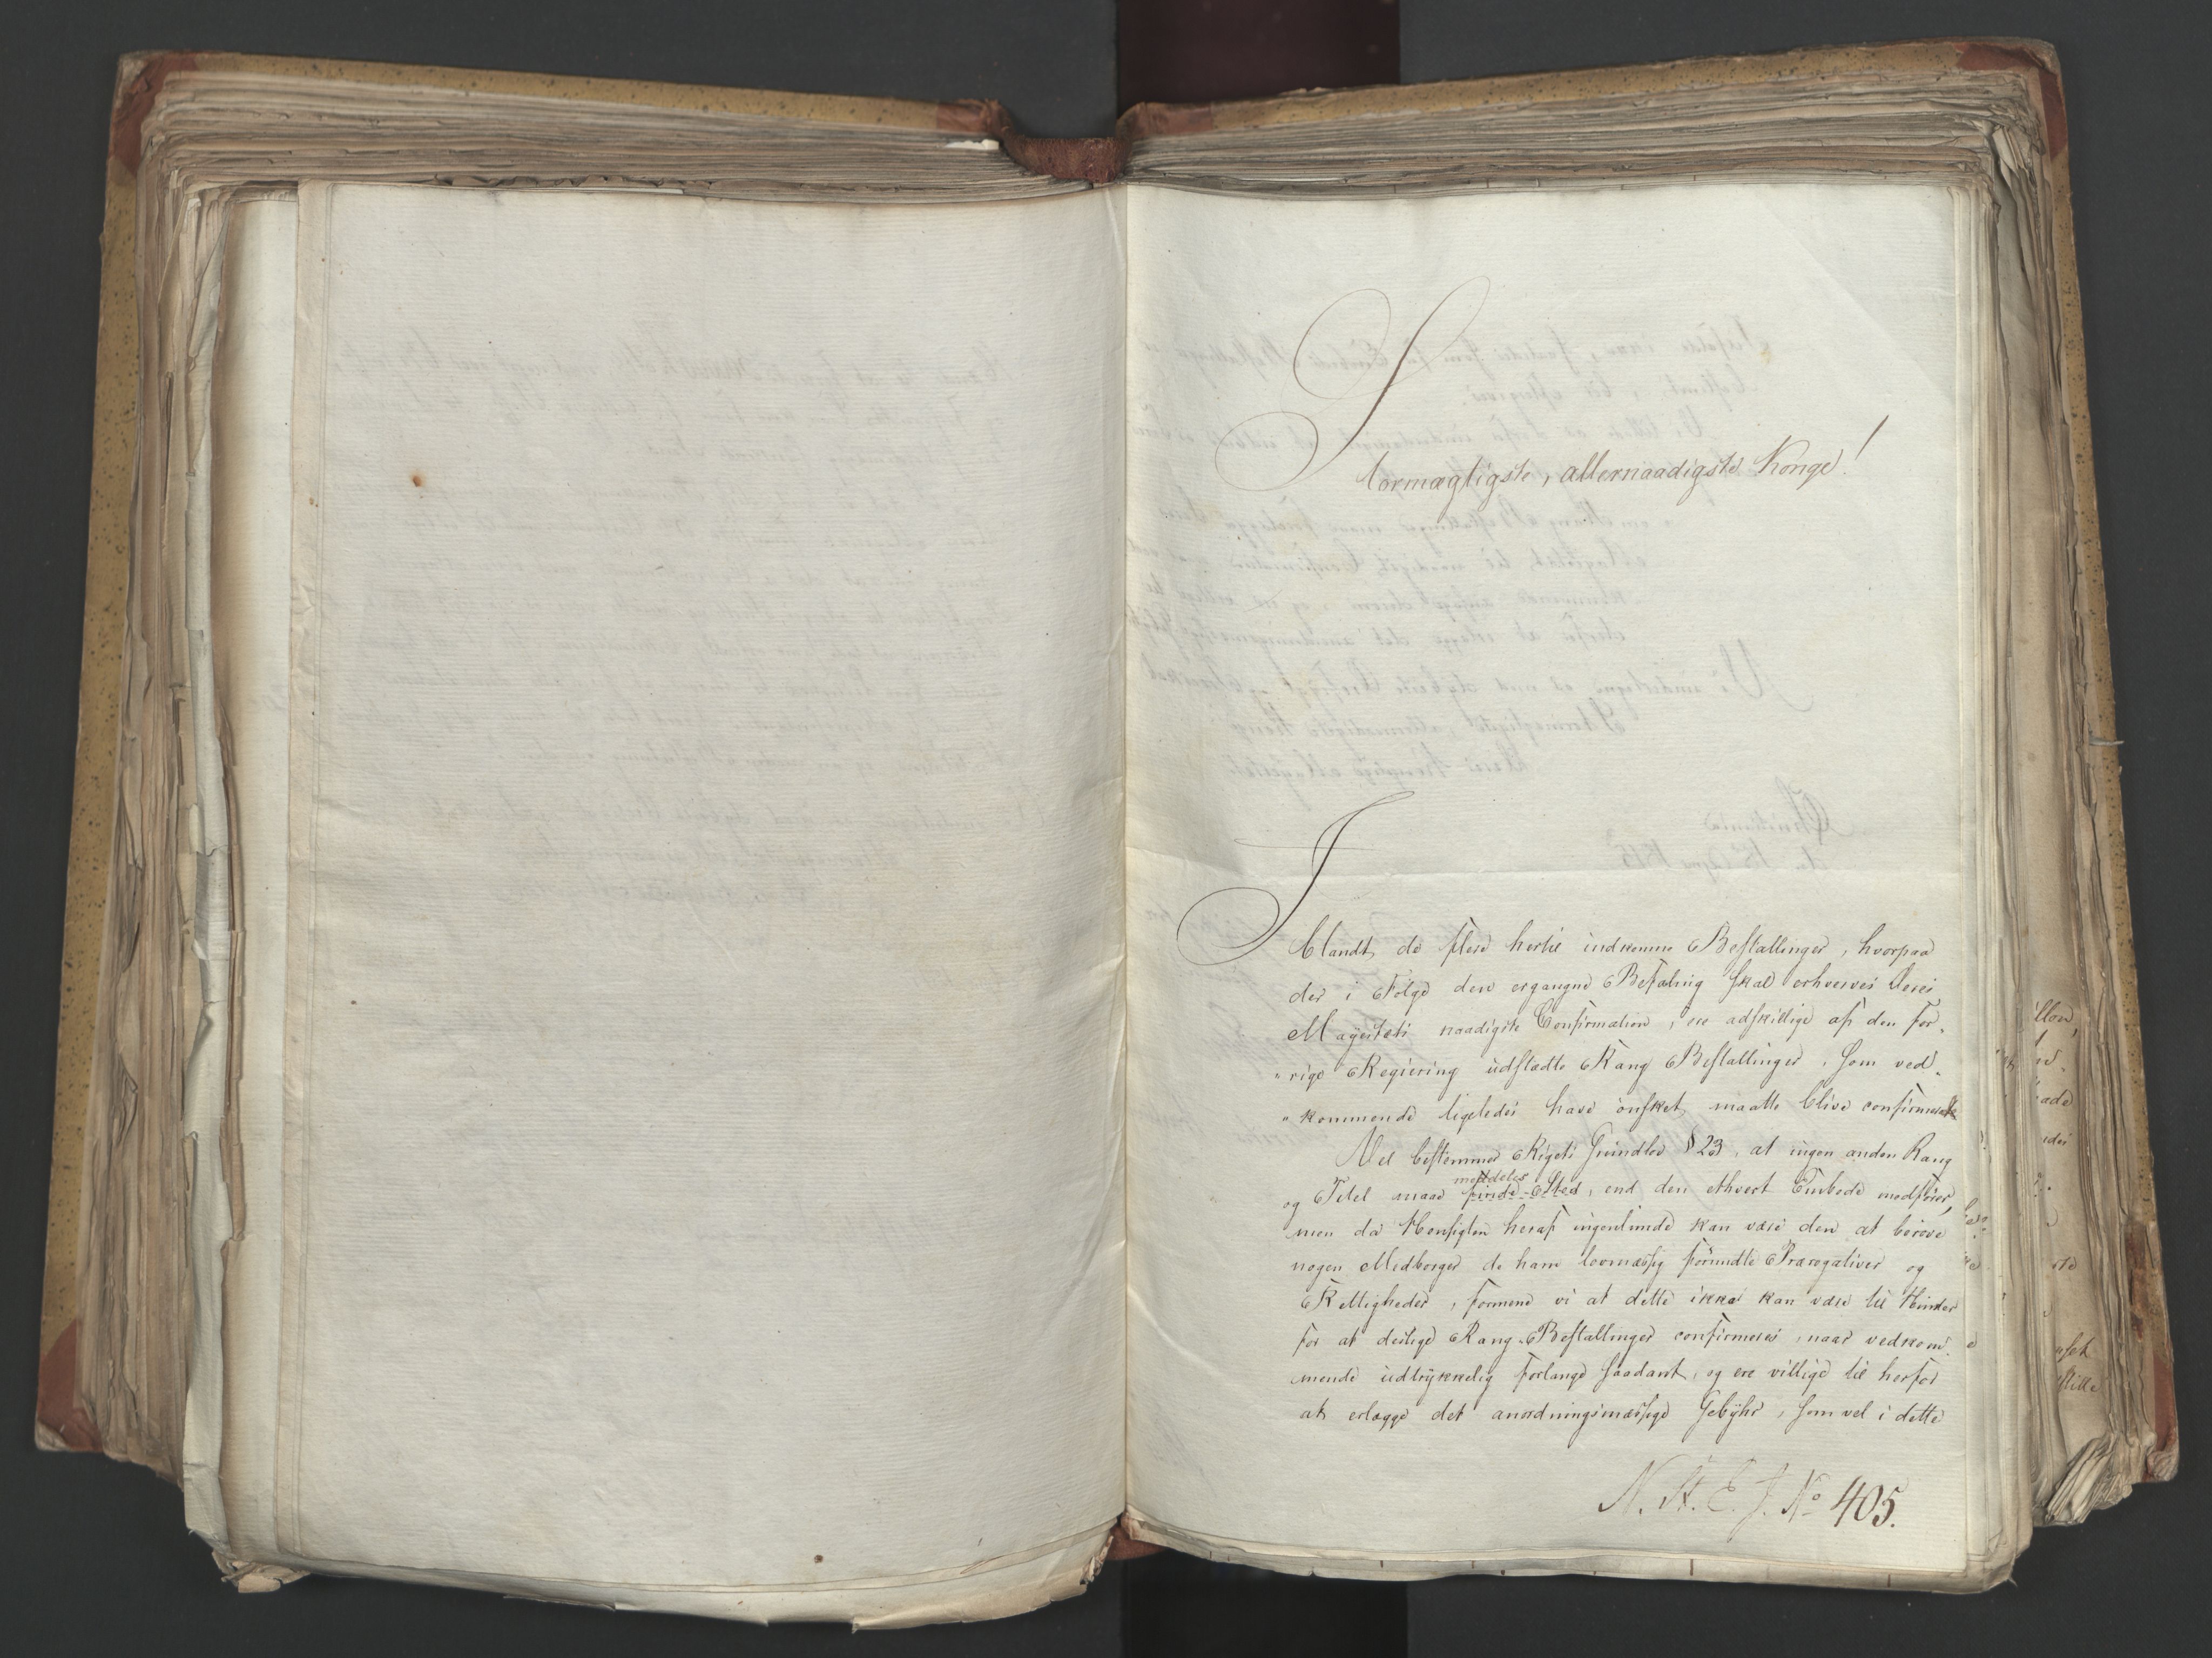 Stormægtigste, allernaadigste Konge!
Iblandt de flere hertil indkomne Bestallinger, hvorpaa
der i Følge den ergangne Befaling skal erhverves Deres
Mayestets naadigste Confirmation, ere adskillige af den for„
„rige Regiering udstædte Rang Bestallinger, som ved„
„kommende ligeledes have ønsket maatte blive confirmerede
Vel bestemmer Rigets Grundlov § 23, at ingen anden Rang
meddeles
og Titel maae finde Sted, end den ethvert Embede medfører,
men da Hensigten heraf ingenlunde kan være den at berøve
nogen Medborger de ham lovmæssig forundte Prærogativer og
Rettigheder, formene vi at dette ikke kan være til Hinder
for at deslige Rang-Bestallinger confirmeres, naar vedkom„
mende udtrykkelig forlange saadant, og ere villige til herfor
at erlægge det anordningsmæssige Gebyhr, som vel i dette
N. St. E. J. No 405.